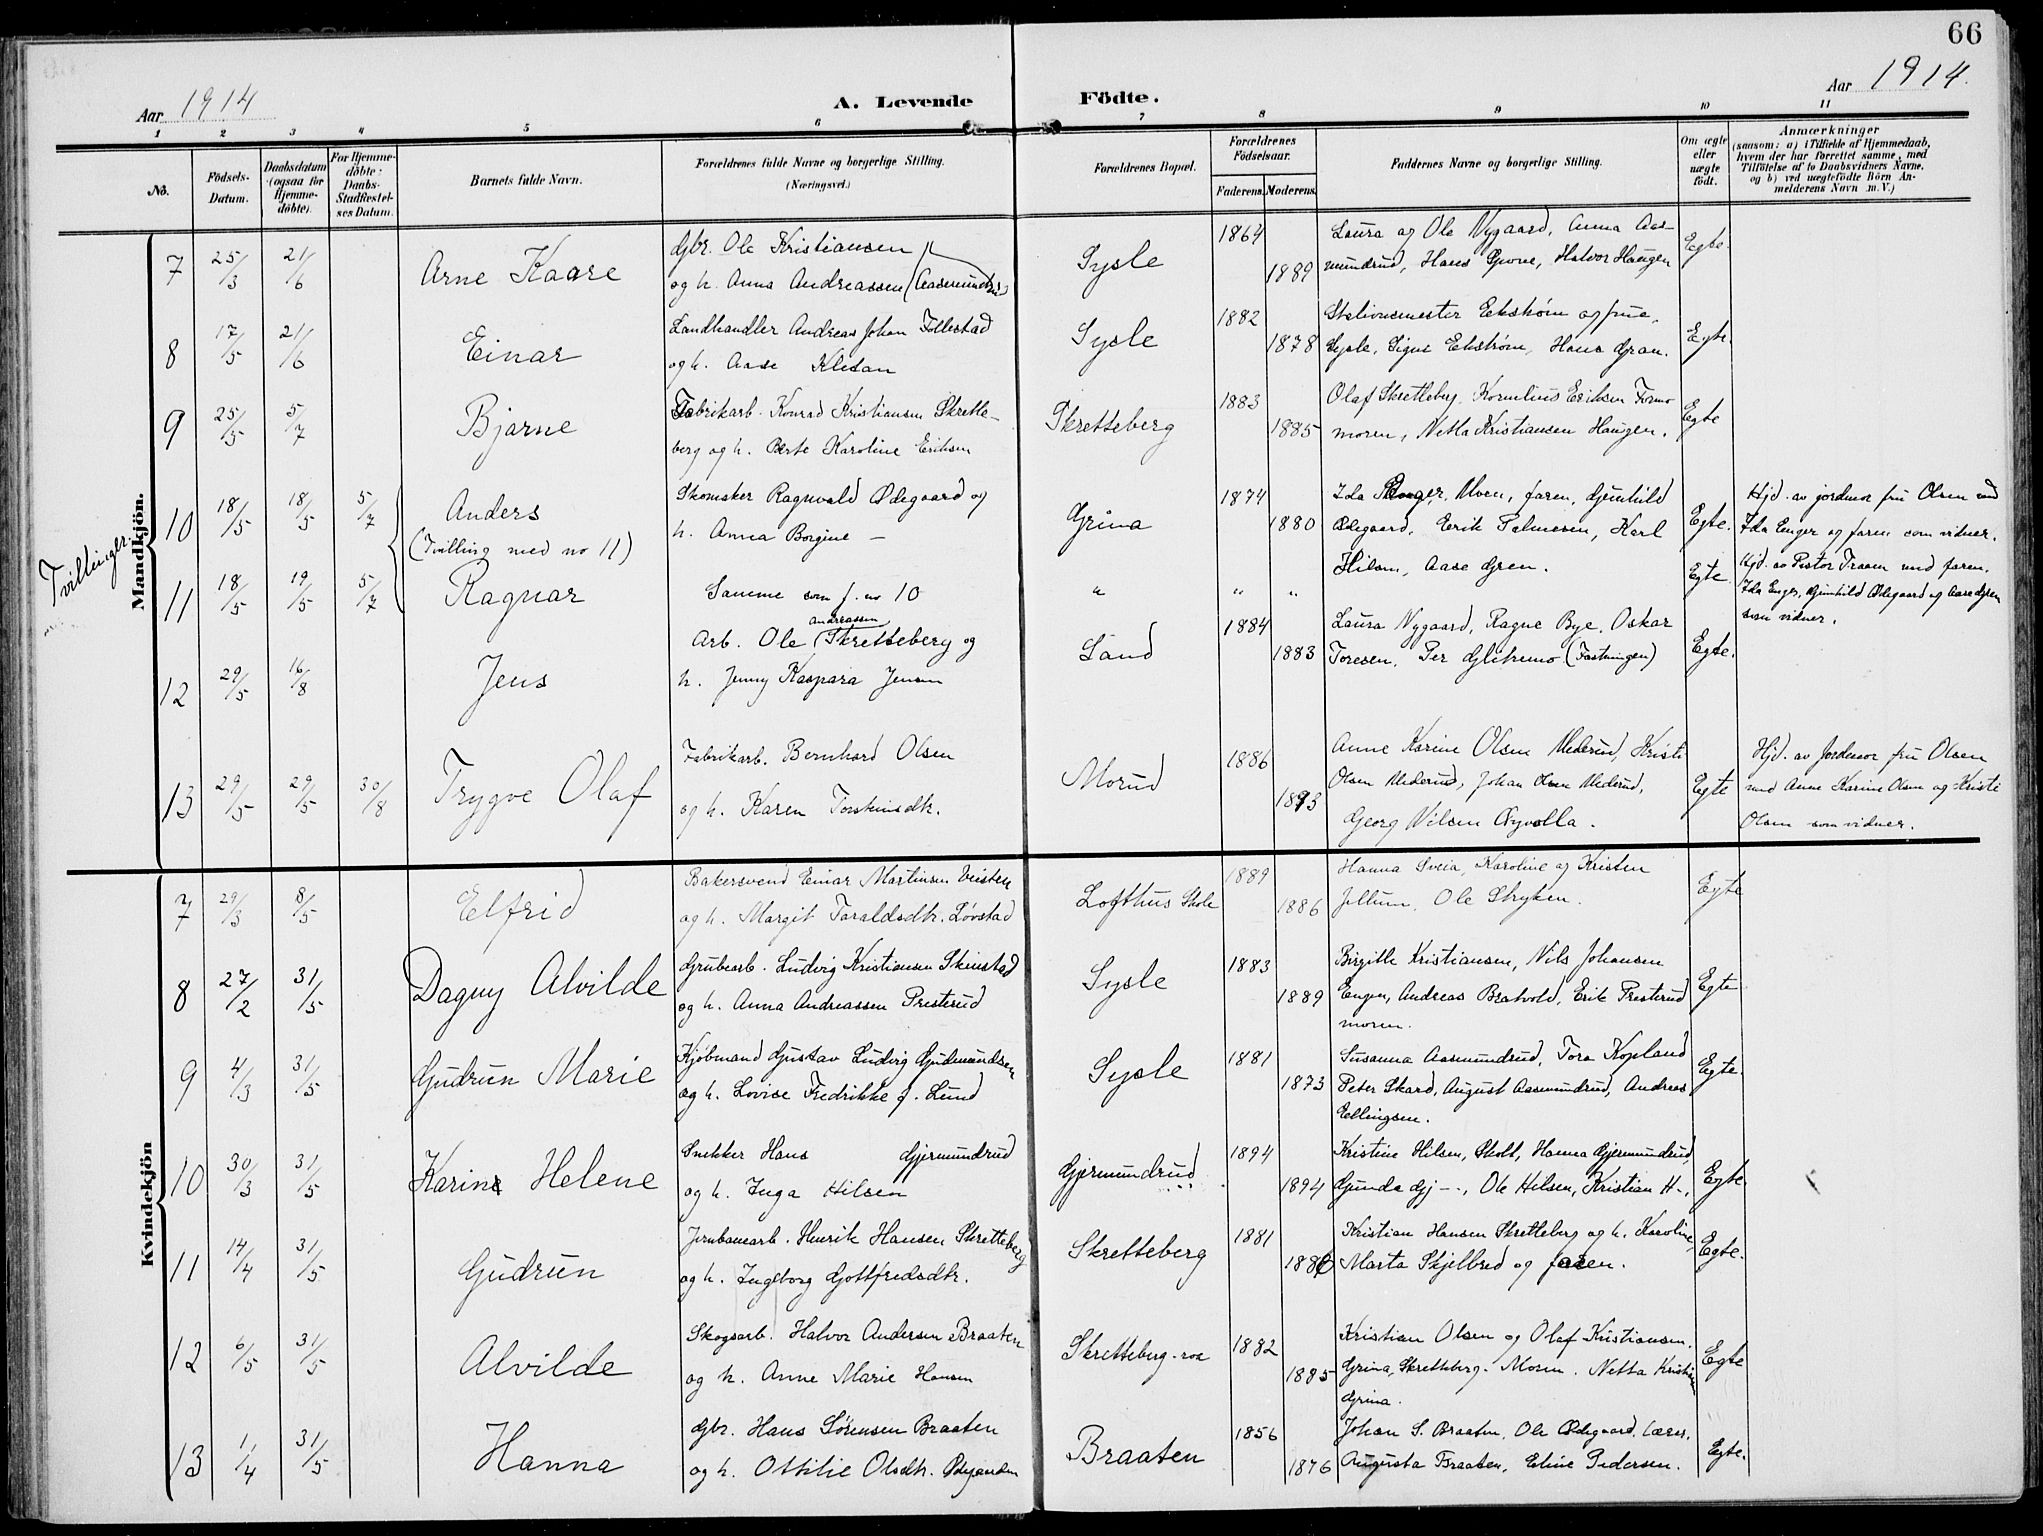 66
Aar 1914
A. Levende
Födte.
Aar 1914.
1 2 3 4 5 6 7 8 9 10 11
No.
Födsels-
Datum.
Daabsdatum
(ogsaa for
Hjemme-
döbte).
For Hjemme-
döbte:
Daabs-
Stadfæstel-
ses Datum.
Barnets fulde Navn.
Forældrenes fulde Navne og borgerlige Stilling.
(Næringsvei.)
Forældrenes Bopæl.
Forældrenes
Födselsaar.
Faderens. Moderens.
Faddernes Navne og borgerlige Stilling.
Om ægte
eller
uægte
født.
Anmærkninger
(saasom: a) i Tilfælde af Hjemmedaab,
hvem der har forrettet samme, med
Tilföielse af to Daabsvidners Navne.
og b) ved uægtefödte Börn An-
melderens Navn m. V.)
Mandkjön.
Tvillinger
7 25/3 21/6 Arne Kaare
Gbr. Ole Kristiansen
og h. Anna Andreassen (Aasmundrud)
Sysle 1864 1889
Laura og Ole Nygaard, Anna Aas-
mundrud, Hans Grove, Halvor Haugen
Egte.
8 17/5 21/6 Einar
Landhandler Andreas Johan Follestad
og h. Aase Kletan
Sysle 1882 1878
Stationsmester Ekstrøm og frue,
Sysle, Signe Ekstrøm, Hans Gran.
Egte.
9 25/5 5/7 Bjarne
Fabrikarb. Konrad Kristiansen Skrette-
berg og h. Berte Karoline Eriksen
Skretteberg 1883 1885
Olaf Skretteberg, Kornelius Eriksen Formo
moren, Netta Kristiansen Haugen.
Egte
10 18/5 18/5 5/7 Anders
(Tvilling med no 11)
Skomaker Ragnvald Ødegaard og
h. Anna Borgine -
Grina 1874 1880
Ida Enger, Moen, faren, Gunhild
Ødegaard, Erik Palmesen, Karl
Hilsen, Aase Gren.
Egte.
Hjd. av jordmor fru Olsen med
Ida Enger og faren som vidner.
11 18/5 19/5 5/7 Ragnar
Samme som f. no 10
" " "
Egte
Hjd. av Pastor Traaen med faren,
Ida Enger, Gunhild Ødegaard og Aase Gren
som vidner.
12 29/5 16/8 Jens
Arb. Ole Andreassen Skretteberg og
h. Jenny Kaspara Jensen
Sand 1884 1883
Laura Nygaard, Ragne Bye, Oskar
Toresen, Per Glitremo (Fastningen)
Egte.
13 29/5 29/5 30/8 Trygve Olaf
Fabrikarb. Bernhard Olsen
og h. Karen Torsteinsdtr.
Morud 1886 1893
Anne Karine Olsen Mederud, Kristi
Olsen Mederud, Johan Olsen Mederud,
Georg Nilsen Nyvolla.
Egte
Hjd. av Jordmor fru Olsen
med Anne Karine Olsen og Kristi
Olsen som vidner.
Kvindekjön
7 29/3 8/5 Elfrid
Bakersvend Einar Martinsen Veisten
og h. Margit Taraldsdtr. Løvstad
Lofthus Skole 1889 1886
Hanna Sveia, Karoline og Kristen
Jellum, Ole Stryken.
Egte
8 27/2 31/5 Dagny Alvilde
Grubearb. Ludvig Kristiansen Skinstad
og h. Anna Andreassen Presterud
Sysle 1883 1889
Birgitte Kristiansen, Nils Johansen
Engen, Andreas Bratvold, Erik Presterud
moren.
Egte
9 4/3 31/5 Gudrun Marie
Kjøbmand Gustav Ludvig Gudmundsen
og h. Lovise Fredrikke f. Lund
Sysle 1881 1873
Susanna Aasmundrud, Tora Kopland
Peter Skard, August Aasmundrud, Andreas
Ellingsen.
Egte.
10 30/3 31/5 Karine Helene
Snekker Hans Gjermundrud
og h. Inga Hilsen
Gjermundrud 1894 1894
Kristine Hilsen, Skolt, Hanna Gjermundrud,
Gunda Gj--, Ole Hilsen, Kristian H-,
Egte.
11 14/4 31/5 Gudrun
Jernbanearb. Henrik Hansen Skretteberg
og h. Ingeborg Gottfredsdtr.
Skretteberg 1881 1880
Kristian Hansen Skretteberg og h. Karoline,
Marta Skjelbred og faren.
Egte.
12 6/5 31/5 Alvilde
Skogsarb. Halvor Andersen Braaten
og h. Anne Marie Hansen
Skretteberg-roa 1882 1885
Kristian Olsen og Olaf Kristiansen.
Grina, Skretteberg. Moren. Netta Kristians
Grina.
Egte
13 1/4 31/5 Hanna
Gbr. Hans Sørensen Braaten
og h. Ottilie Olsdtr.
Braaten 1856 1876
Johan S. Braaten, Ole Ødegaard, Lærer.
Augusta Braaten, Eline Pedersen.
Egte.